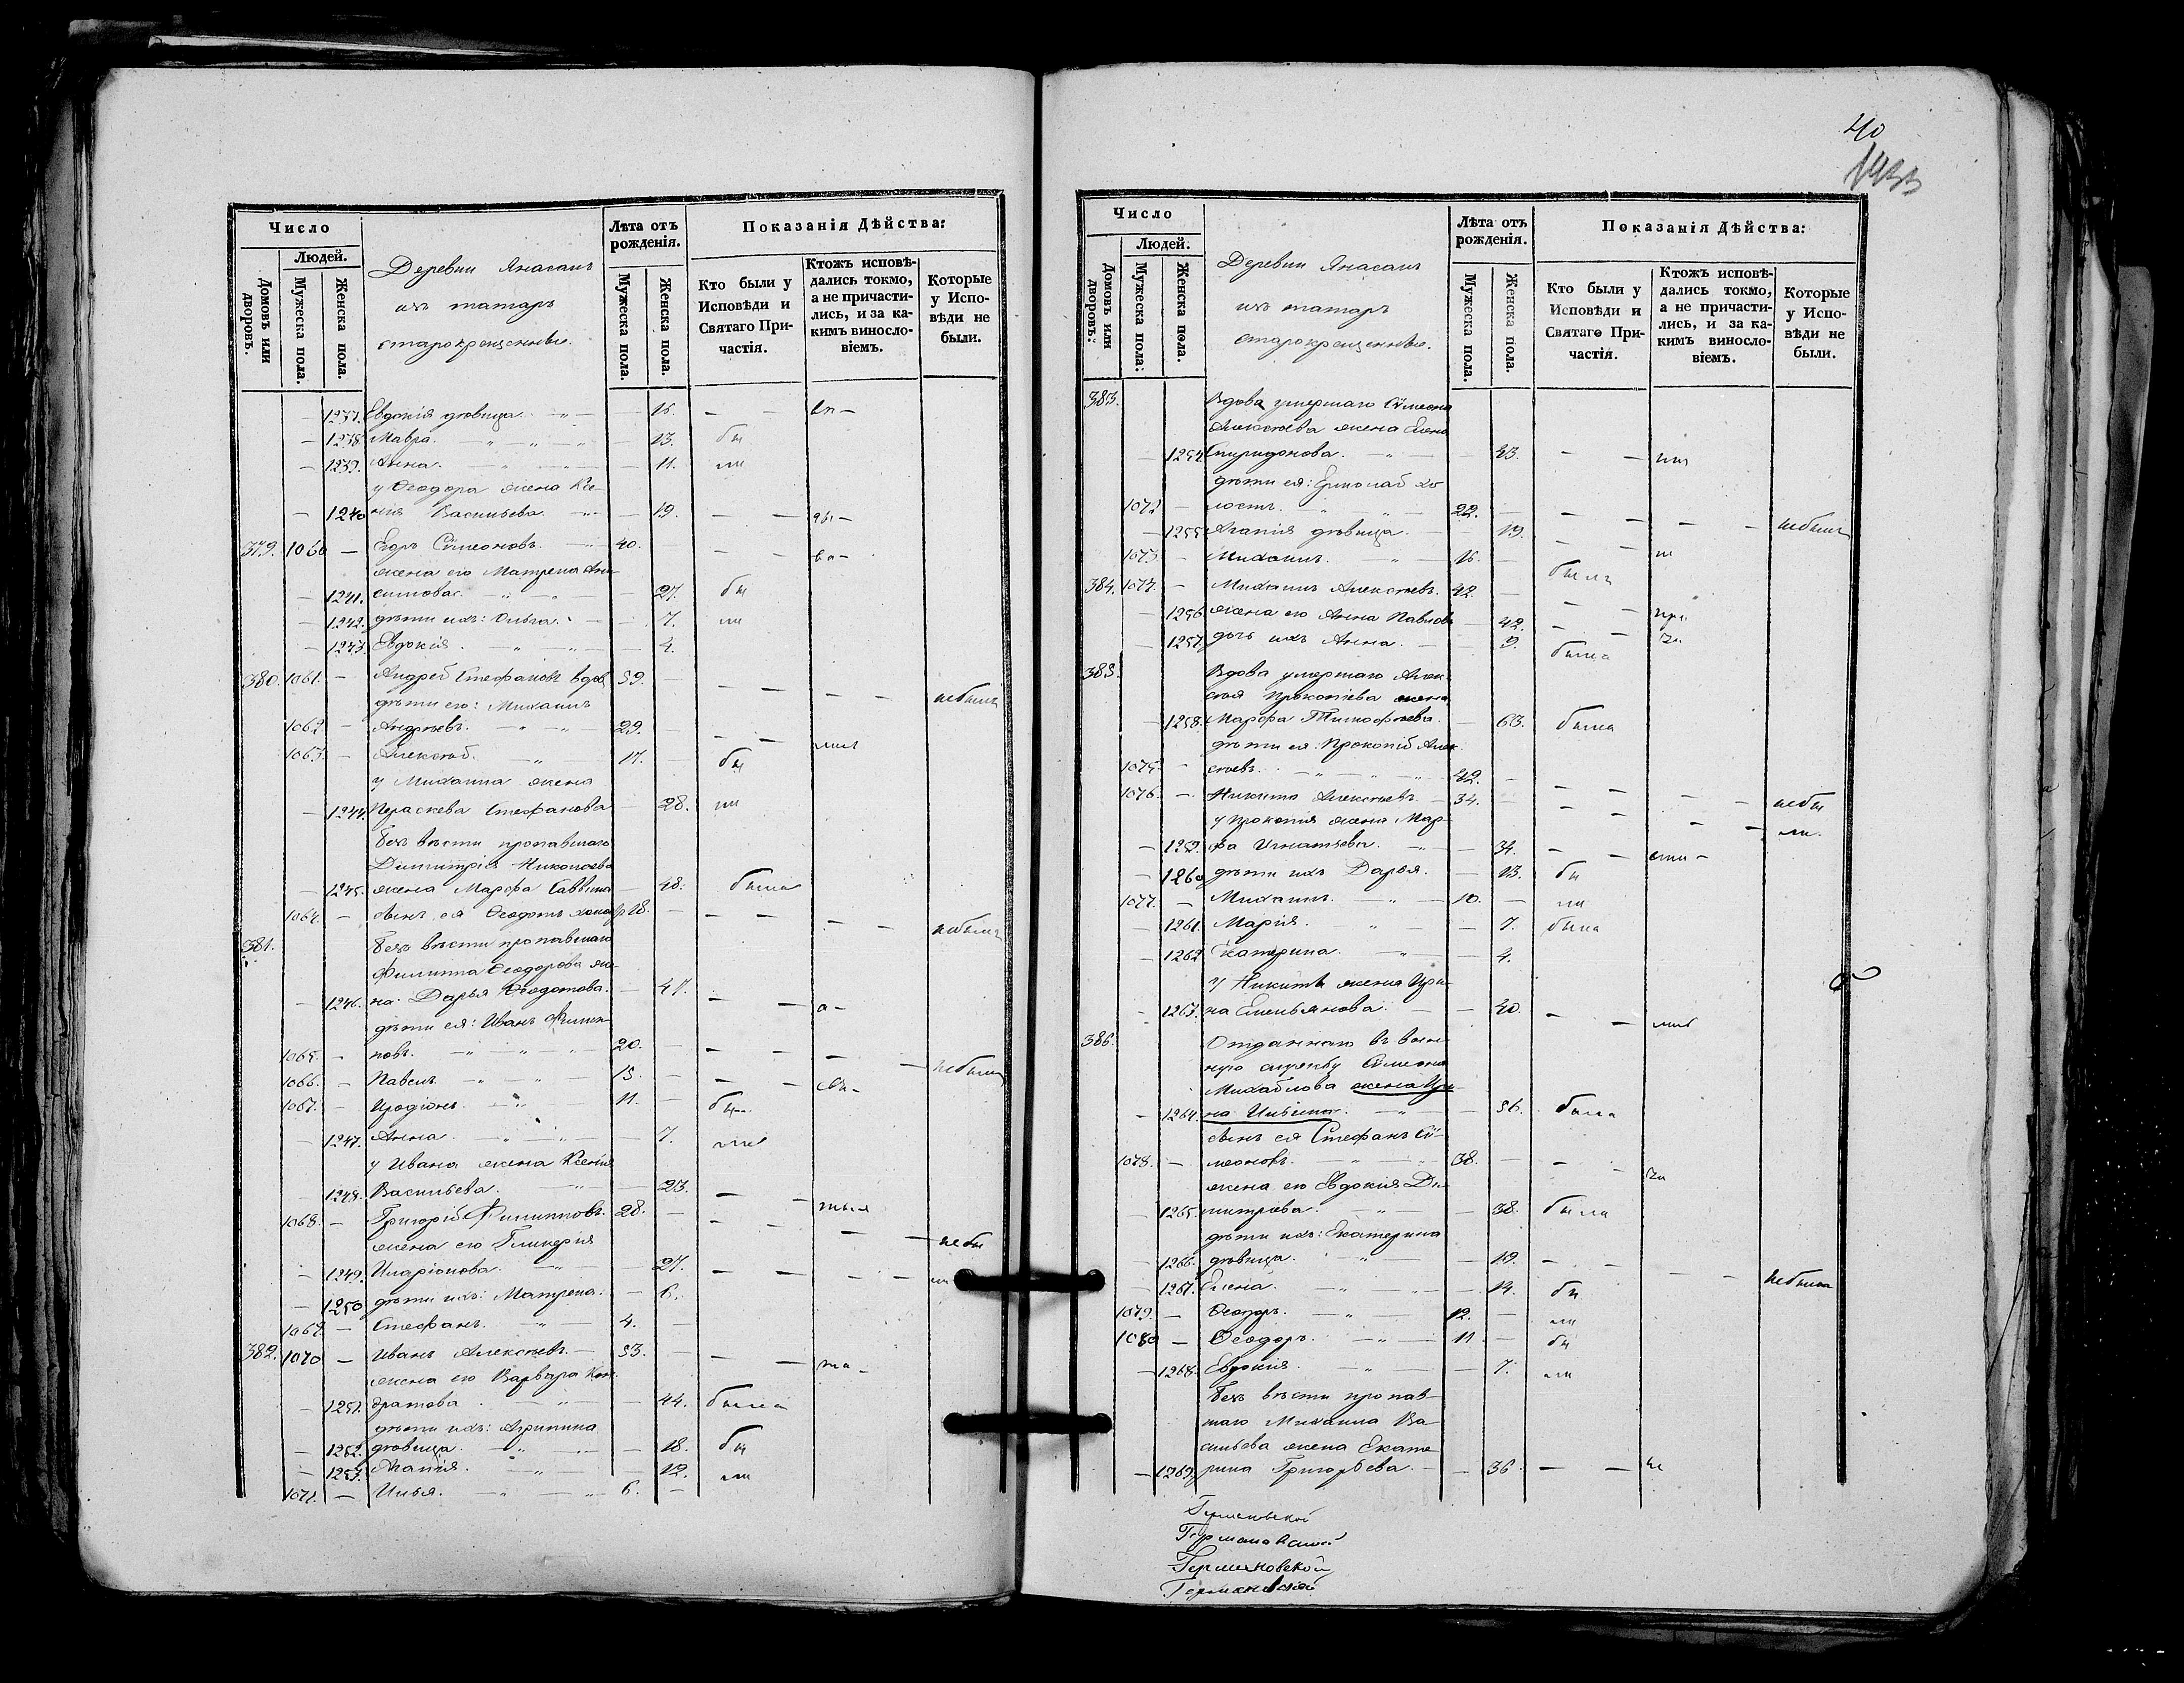 Число
Людей.
Домовъ или дворовъ.
Мужеска пола.
Женска пола.
Деревни Янасалъ
изъ татаръ
старокрещенные.
Лѣта отъ рожденія.
Мужеска пола.
Женска пола.
Показанія Дѣйства:
Кто были у Исповѣди и Святаго Причастія.
Ктожъ исповѣдались токмо, а не причастились, и за какимъ винословіемъ.
Которые у Исповѣди не были.
— 1237. Евдокія дѣвица — 16. — —
— 1238. Мавра — 13. бы
— 1239. Анна — 11. ли
у Ѳеодора жена Ксе-
— 1240 нія Васильева — 19. — —
379. 1060 — Егоръ Сѵмеоновъ 40. — — —
жена его Матрена Ани-
— 1241. симова — 27. бы
— 1242. дѣти ихъ: Ольга — 7. ли
— 1243. Евдокія — 4.
380. 1061. — Андрей Стефановъ вдов 59. — — — — — небылъ
дѣти его: Михаилъ
1062 — Андреевъ 29. — — —
1063. — Алексѣй 17. — бы
у Михаила жена
— 1244. Параскева Стефанова — 28. ли
Безъ вѣсти пропавшаго
Димитрія Николаева
— 1245. жена Марфа Саввина — 48. была
1064. — сынъ ея Ѳеодотъ 18. — — — — — небылъ
381. Безъ вѣсти пропавшаго
Филиппа Ѳеодорова же-
— 1246. на Дарья Ѳеодотова — 47. — —
дѣти ея: Иванъ Филип-
1065. — повъ 20. — — — — — небылъ
1066. — Павелъ 15. — — —
1067. — Иродіонъ 11. — бы
— 1247. Анна — 7. ли
у Ивана жена Ксенія
— 1248. Васильева — 23. — —
1068. — Григорій Филипповъ 28. — — — — — небы
жена его Гликерія
— 1249. Иларіонова — 27. — — — — ли
— 1250 дѣти ихъ: Матрена — 6.
1069 — Стефанъ 4. —
382. 1070 — Иванъ Алексѣевъ 53. — — —
жена его Варвара Кон-
— 1251. дратова — 44. была
дѣти ихъ: Агрипина
— 1252. дѣвица — 18. бы
— 1253. Агапія — 12. ли
1071. — Илья 6. —
40
1933
Число
Людей.
Домовъ или дворовъ:
Мужеска пола:
Женска пола.
Деревни Янасалъ
изъ татаръ
старокрещенные.
Лѣта отъ рожденія.
Мужеска пола.
Женска пола.
Показанія Дѣйства:
Кто были у Исповѣди и Святаго Причастія.
Ктожъ исповѣдались токмо, а не причастились, и за какимъ винословіемъ.
Которые у Исповѣди не были.
383. Вдова умершаго Сѵмеона
Алексѣева жена Елена
— 1254 Спиридонова — 43. — —
дѣти ея: Ермолай хо
1072 — лостъ 22. — — — — — небылъ
— 1255 Агапія дѣвица — 19. — —
1073 — Михаилъ 16. — былъ
384. 1074. — Михаилъ Алексѣевъ 42. — — — при
— 1256 жена его Анна Павлова — 42. — — ча
— 1257 дочь ихъ Анна — 9. была
385. Вдова умершаго Алек
сѣя Прокопіева жена
— 1258. Марфа Тимофѣева — 63. была
дѣти ея: Прокопій Алек
1075. — сѣевъ 42. — — — — — небы
1076. — Никита Алексѣевъ 34. — — — — — ли.
у Прокопія жена Мар
— 1259. фа Игнатьева — 34. — —
— 1260 дѣти ихъ Дарья — 13. бы
1077. — Михаилъ 10. — ли
— 1261. Марія — 7. была
— 1262 Екатерина — 4.
у Никиты жена Ири-
— 1263. на Емельянова — 40. — —
386. Отданнаго въ воен-
ную службу Сѵмеона
Михайлова жена Ири-
— 1264. на Ильина — 56. была
сынъ ея Стефанъ Сѵ-
1078. — меоновъ 38. — — —
жена его Евдокія Ди-
— 1265. митріева — 38. была
дѣти ихъ: Екатерина
— 1266. дѣвица — 19. — — — — небыла
— 1267. Елена — 14. бы
1079. — Ѳеодоръ 12. — ли
1080 — Ѳеодоръ 11. — бы
— 1268. Евдокія — 7. ли
Безъ вѣсти пропав-
шаго Михаила Ва-
сильева жена Екате
— 1269. рина Григорьева — 36 — —
Германовской
Германовской
Германовской